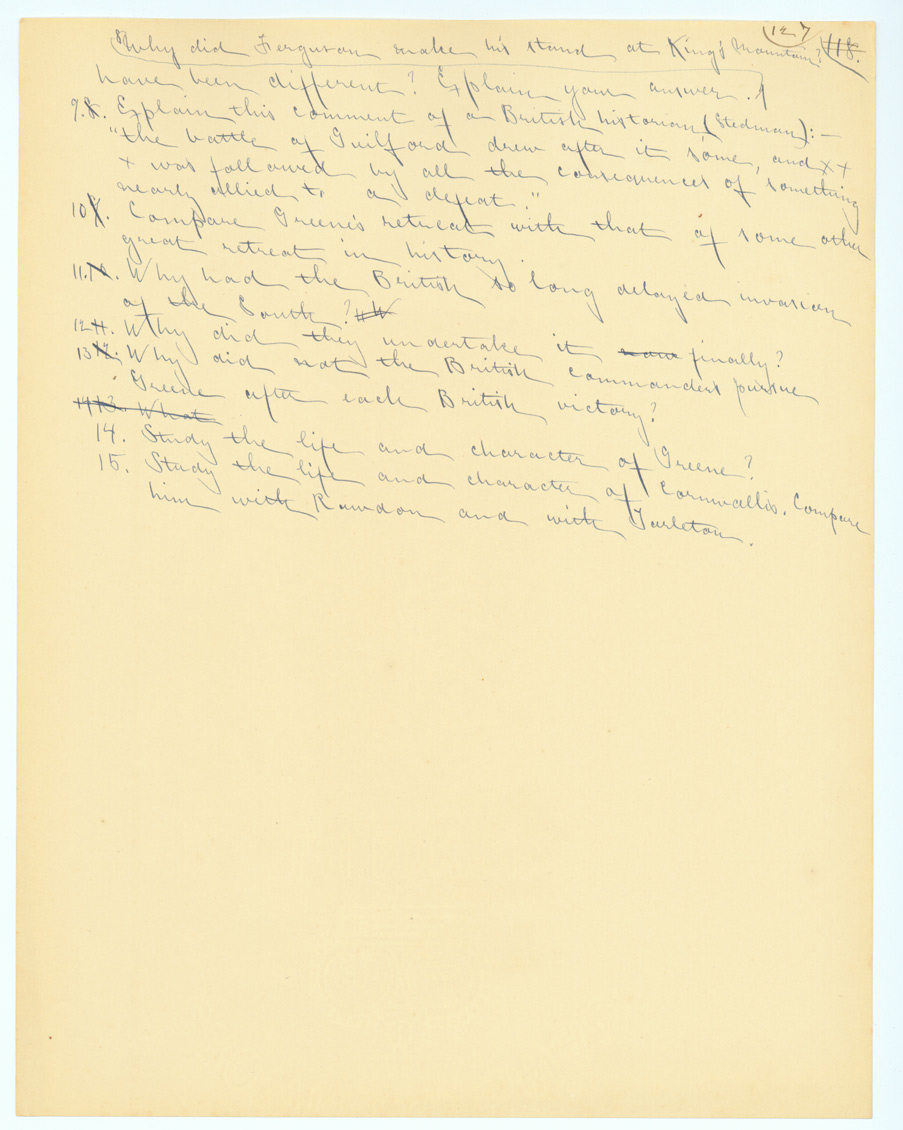 127 118.
8. Why did Ferguson make his stand at King's Mountain?
have been different? Explain your answer.
9. 8. Explain this comment of a British historian (Stedman): —
"the battle of Guilford drew after it some, and x x
x was followed by all the consequences of something
nearly allied to a defeat."
10 9. Compare Greene's retreat with that of some other
great retreat in history.
11. 10. Why had the British so long delayed invasion
of the South?
12 11. Why did they undertake it now finally?
13 12. Why did not the British commanders pursue
Greene after each British victory?
14 13. What
14. Study the life and character of Greene?
15. Study the life and character of Cornwallis. Compare
him with Rawdon and with Tarleton.